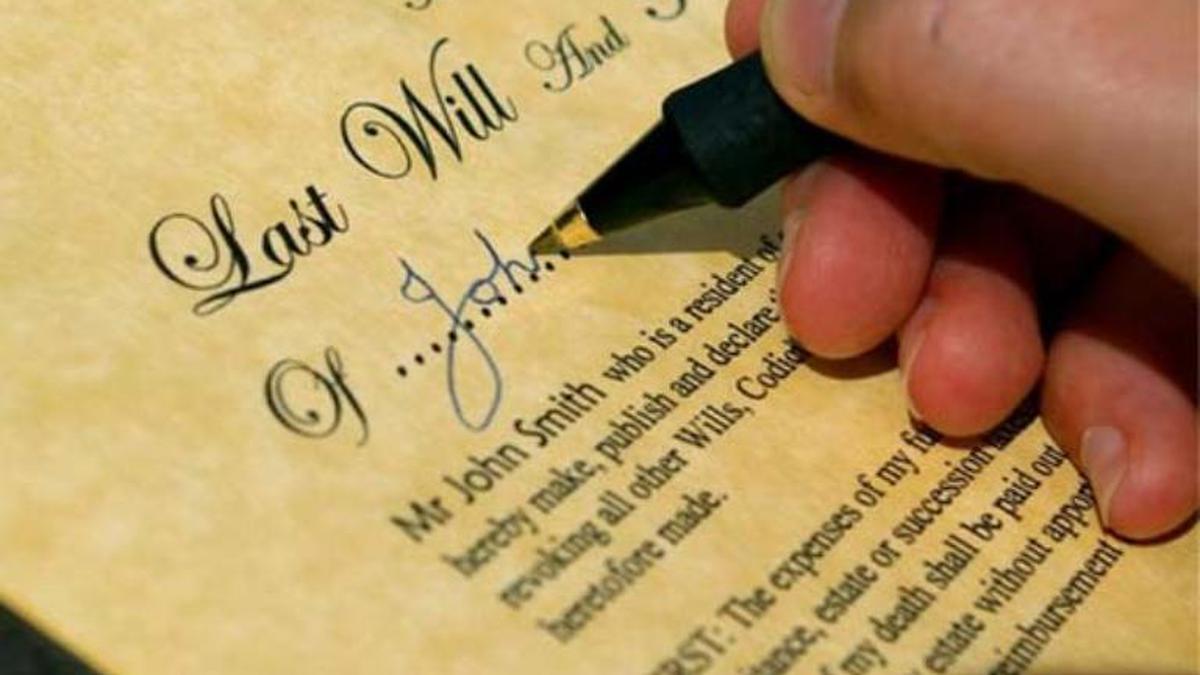 Last Will And
Of ...John...
Mr John Smith who is a resident of
hereby make, publish and declare
revoking all other Wills, Codic
heretofore made.
RST: The expenses of my fu
itance, estate or succession
f my death shall be paid out
estate without appor
eimbursement